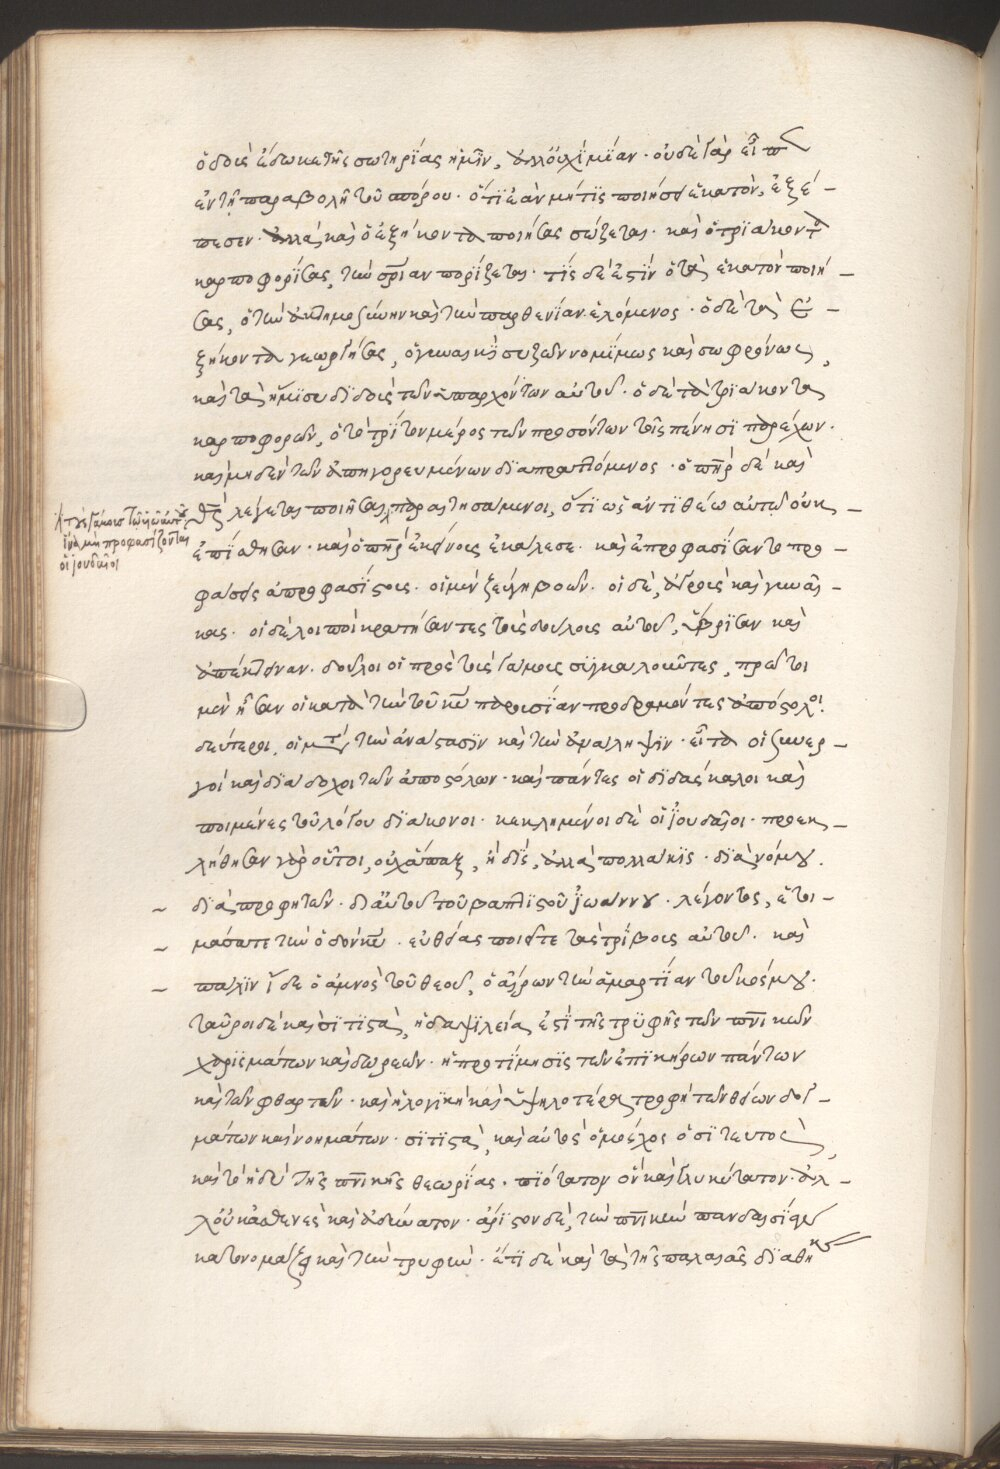 ὁδοὺς ἔδωκε τῆς σωτηρίας ἡμῖν, ἀλλ' οὐχὶ μίαν· οὐδὲ γὰρ εἶπεν
ἐν τῇ παραβολῇ τοῦ σπόρου· ὅτι ἐὰν μή τις ποιήσῃ ἑκατόν, ἐξέ-
πεσεν· ἀλλὰ καὶ ὁ ἑξήκοντα ποιήσας σώζεται· καὶ ὁ τριάκοντα
καρποφορήσας, τὴν σρίαν πορίζεται· τίς δέ ἐστιν ὁ τὰ ἑκατὸν ποιή-
σας, ὁ τὴν ἀκτημοσύνην καὶ τὴν παρθενίαν ἑλόμενος· ὁ δὲ τὰ ἑ-
ξήκοντα γεωργήσας, ὁ γυναικὶ συζῶν νομίμως καὶ σωφρόνως,
καὶ τὰ ἥμισυ διδοὺς τῶν ὑπαρχόντων αὐτοῦ· ὁ δὲ τὰ τριάκοντα
καρποφορῶν, ὁ τὸ τρίτον μέρος τῶν προσόντων τοῖς πένησι παρέχων·
καὶ μηδὲν τῶν ἀπηγορευμένων διαπραττόμενος· ὁ πηρ δὲ καὶ
θς λέγεται ποιῆσαι, παραιτησάμενοι, ὅτι ὡς ἀντιθέῳ αὐτῷ οὐκ
ἐπείσθησαν· καὶ ὁ πηρ ἐκείνους ἐκάλεσε· καὶ ἐπροφασίσαντο προ-
φάσεις ἀπροφασίστους· οἱ μὲν ζεύγη βοῶν· οἱ δὲ, ἀγροὺς καὶ γυναῖ-
κας· οἱ δὲ λοιποὶ κρατήσαντες τοὺς δούλους αὐτοῦ, ὕβρισαν καὶ
ἀπέκτειναν· δοῦλοι οἱ πρὸς τοὺς γάμους συγκαλοῦντες, πρῶτοι
μὲν ἦσαν οἱ κατὰ τὴν τοῦ κυ παρουσίαν προδραμόντες ἀπόστολοι·
δεύτεροι, οἱ μετὰ τὴν ἀνάστασιν καὶ τὴν ἀνάληψιν· εἶτα οἱ συνερ-
γοὶ καὶ διάδοχοι τῶν ἀποστόλων· καὶ πάντες οἱ διδάσκαλοι καὶ
ποιμένες τοῦ λόγου διάκονοι· κεκλημένοι δὲ οἱ ἰουδαῖοι· προεκ-
λήθησαν γὰρ οὗτοι, οὐχ ἅπαξ, ἢ δὶς, ἀλλὰ πολλάκις· διὰ νόμου·
διὰ προφητῶν· δι' αὐτοῦ τοῦ βαπτιστοῦ ἰωάννου· λέγοντος, ἑτοι-
μάσατε τὴν ὁδὸν κυ· εὐθείας ποιεῖτε τὰς τρίβους αὐτοῦ· καὶ
πάλιν ἴδε ὁ ἀμνὸς τοῦ θεοῦ, ὁ αἴρων τὴν ἁμαρτίαν τοῦ κόσμου·
ταῦροι δὲ καὶ σιτιστὰ, ἡ δαψίλειά ἐστι τῆς τρυφῆς τῶν πνικῶν
χαρισμάτων καὶ δωρεῶν· ἡ προτίμησις τῶν ἐπικήρων πάντων
καὶ τῶν φθαρτῶν· καὶ ἡ λογικὴ καὶ ὑψηλοτέρα τροφὴ τῶν θείων δογ-
μάτων καὶ νοημάτων· σιτιστὰ, καὶ αὐτὸς ὁ μόσχος ὁ σιτευτὸς,
καὶ τὸ ἡδὺ τῆς πνικῆς θεωρίας· πιότατον οὖν καὶ γλυκύτατον· ἀλ-
λ' οὐκ ἀσθενὲς καὶ ἀδύνατον· ἄριστον δὲ, τὴν πνικὴν πανδαισίαν
κατονομάζει καὶ τὴν τρυφήν· ἔτι δὲ καὶ τὰ τῆς παλαιᾶς διαθήκης
ἵνα μὴ προφασίζονται
οἱ ἰουδαῖοι